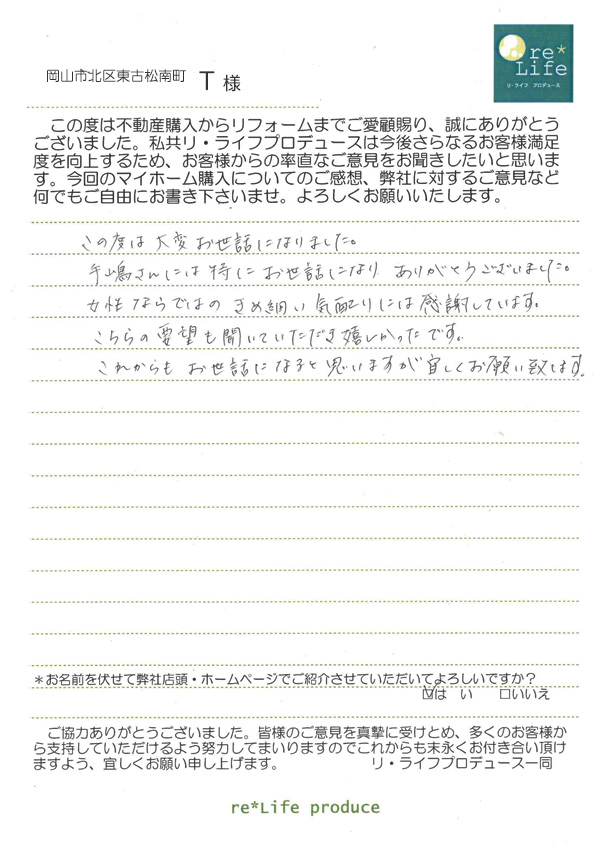 岡山市北区東古松南町 T 様
re*
Life
リ・ライフ プロデュース
この度は不動産購入からリフォームまでご愛顧賜り、誠にありがとう
ございました。私共リ・ライフプロデュースは今後さらなるお客様満足
度を向上するため、お客様からの率直なご意見をお聞きしたいと思いま
す。今回のマイホーム購入についてのご感想、弊社に対するご意見など
何でもご自由にお書き下さいませ。よろしくお願いいたします。
この度は大変お世話になりました。
手嶋さんには特にお世話になり ありがとうございました。
女性ならではの きめ細い気配りには感謝しています。
こちらの要望も聞いていただき嬉しかったです。
これからも お世話になると思いますが宜しくお願い致します。
*お名前を伏せて弊社店頭・ホームページでご紹介させていただいてよろしいですか?
☑は い □いいえ
ご協力ありがとうございました。皆様のご意見を真摯に受けとめ、多くのお客様か
ら支持していただけるよう努力してまいりますのでこれからも末永くお付き合い頂け
ますよう、宜しくお願い申し上げます。 リ・ライフプロデュース一同
re*Life produce